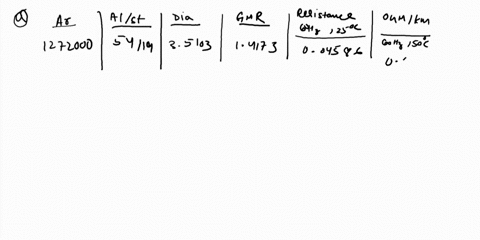 a)
Ar | Al/st | Dia | GMR | Resistance 60Hz, 25°C | OHM/km 60Hz, 50°C
1272000 | 54/19 | 3.5103 | 1.4173 | 0.04586 | 0.